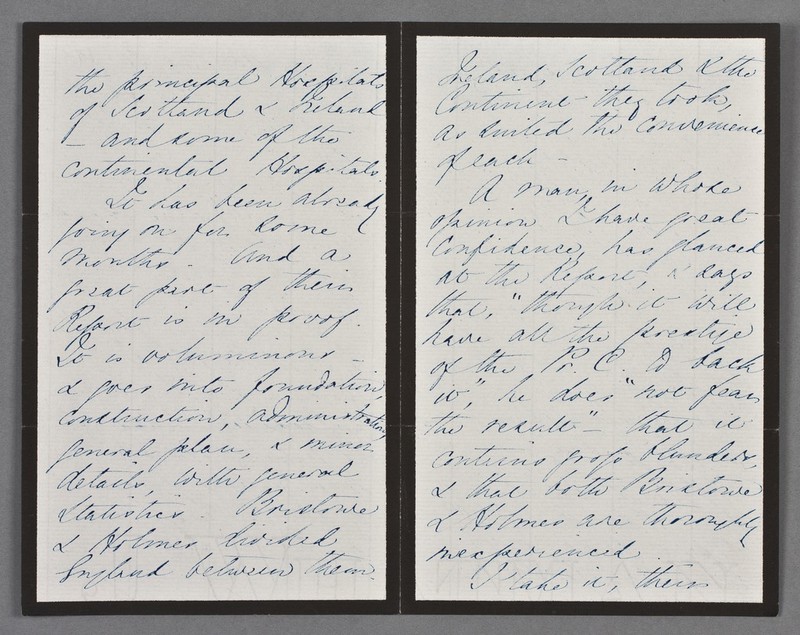 the principal Hospitals
of Scotland & Ireland
- and some of the
continental Hospitals.
It has been already
going on for some
months. And a
great part of their
Report is in proof.
It is voluminous -
& goes into foundation,
construction, administration,
general plan, & minor
details, with general
statistics. Bristowe
& Holmes divided
England between them.
Ireland, Scotland & the
Continent they took,
as suited the convenience
of each -
A man, in whose
opinion I have great
confidence, has glanced
at the Report, & says
that, "though it will
have all the prestige
of the Pr. C. to back
it," he does "not fear
the result" - that it
contains gross blunders,
& that both Bristowe
& Holmes are thoroughly
inexperienced.
I take it, their